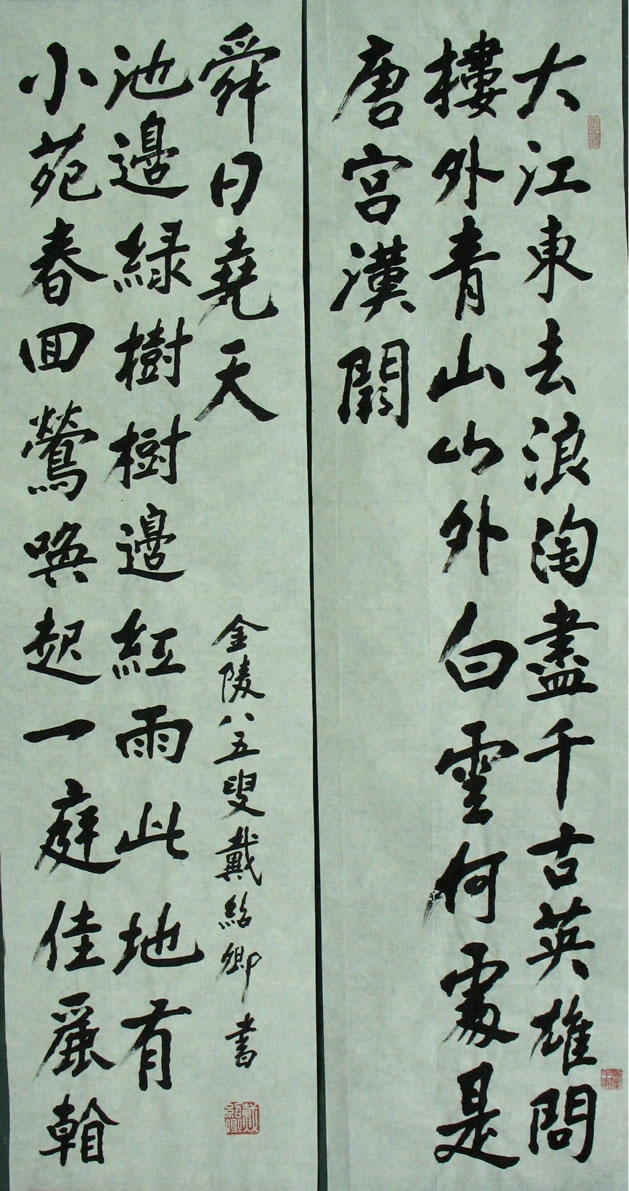 大江東去浪淘盡千古英雄問
樓外青山山外白雲何處是
唐宮漢闕
小苑春回鶯喚起一庭佳麗看
池邊綠樹樹邊紅雨此地有
舜日堯天
金陵八五叟戴紹卿書
戴紹卿